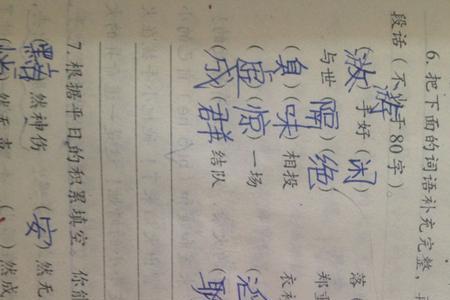 6. 把下面的词语补充完整,
段话(不少于80字)。
(游)手好(闲) 落
与世(隔)(绝) 郑重
(臭)(味)相投 衣
(虚)(惊)一场
(成)(群)结队
7. 根据平日的积累填空。你能
(黯)然神伤 (安)然无
然无声 ( )然成